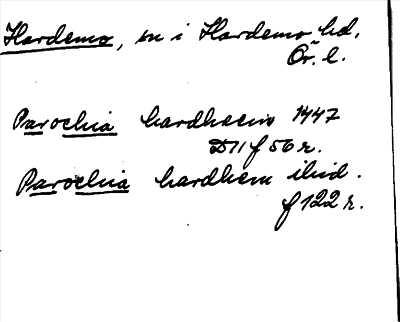 Hardemo, sn i Hardemo hd,
Ör. l.
Parochia hardhem 1447
D 11 f 56 r.
Parochia hardhem ibid.
f 122 r.